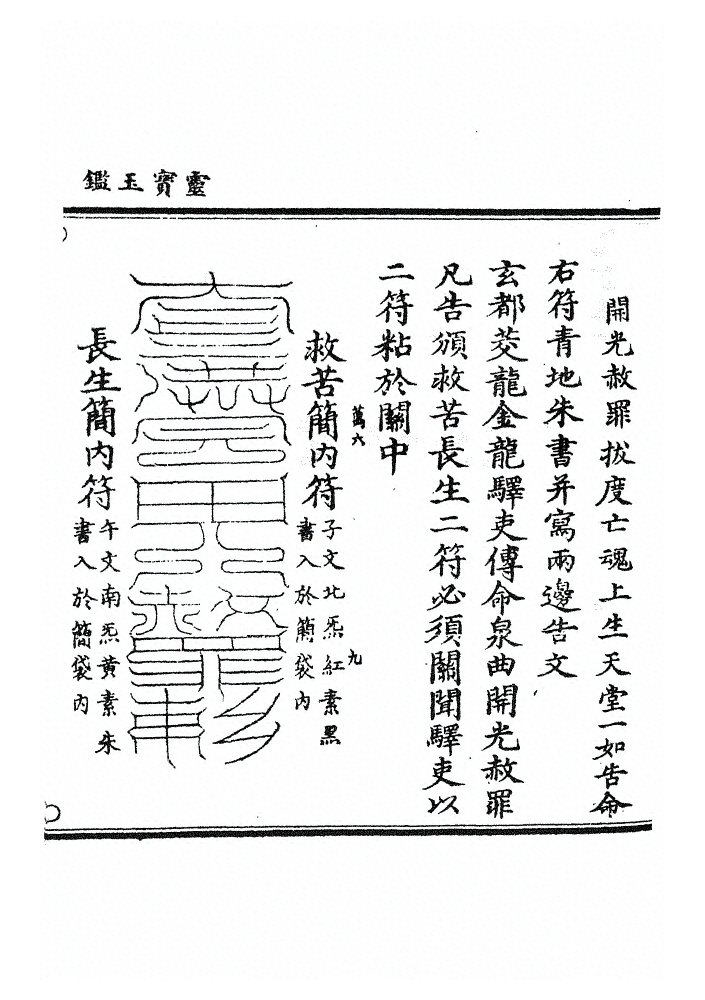 靈寶玉鑑
開光赦罪拔度亡魂上生天堂一如告命
右符青地朱書并寫兩邊告文
玄都茭龍金龍驛吏傳命泉曲開光赦罪
凡告頒救苦長生二符必須關聞驛吏以
二符粘於關中
萬六
九
救苦簡內符
子文北炁紅素黑
書入於簡袋內
長生簡內符
午文南炁黃素朱
書入於簡袋內